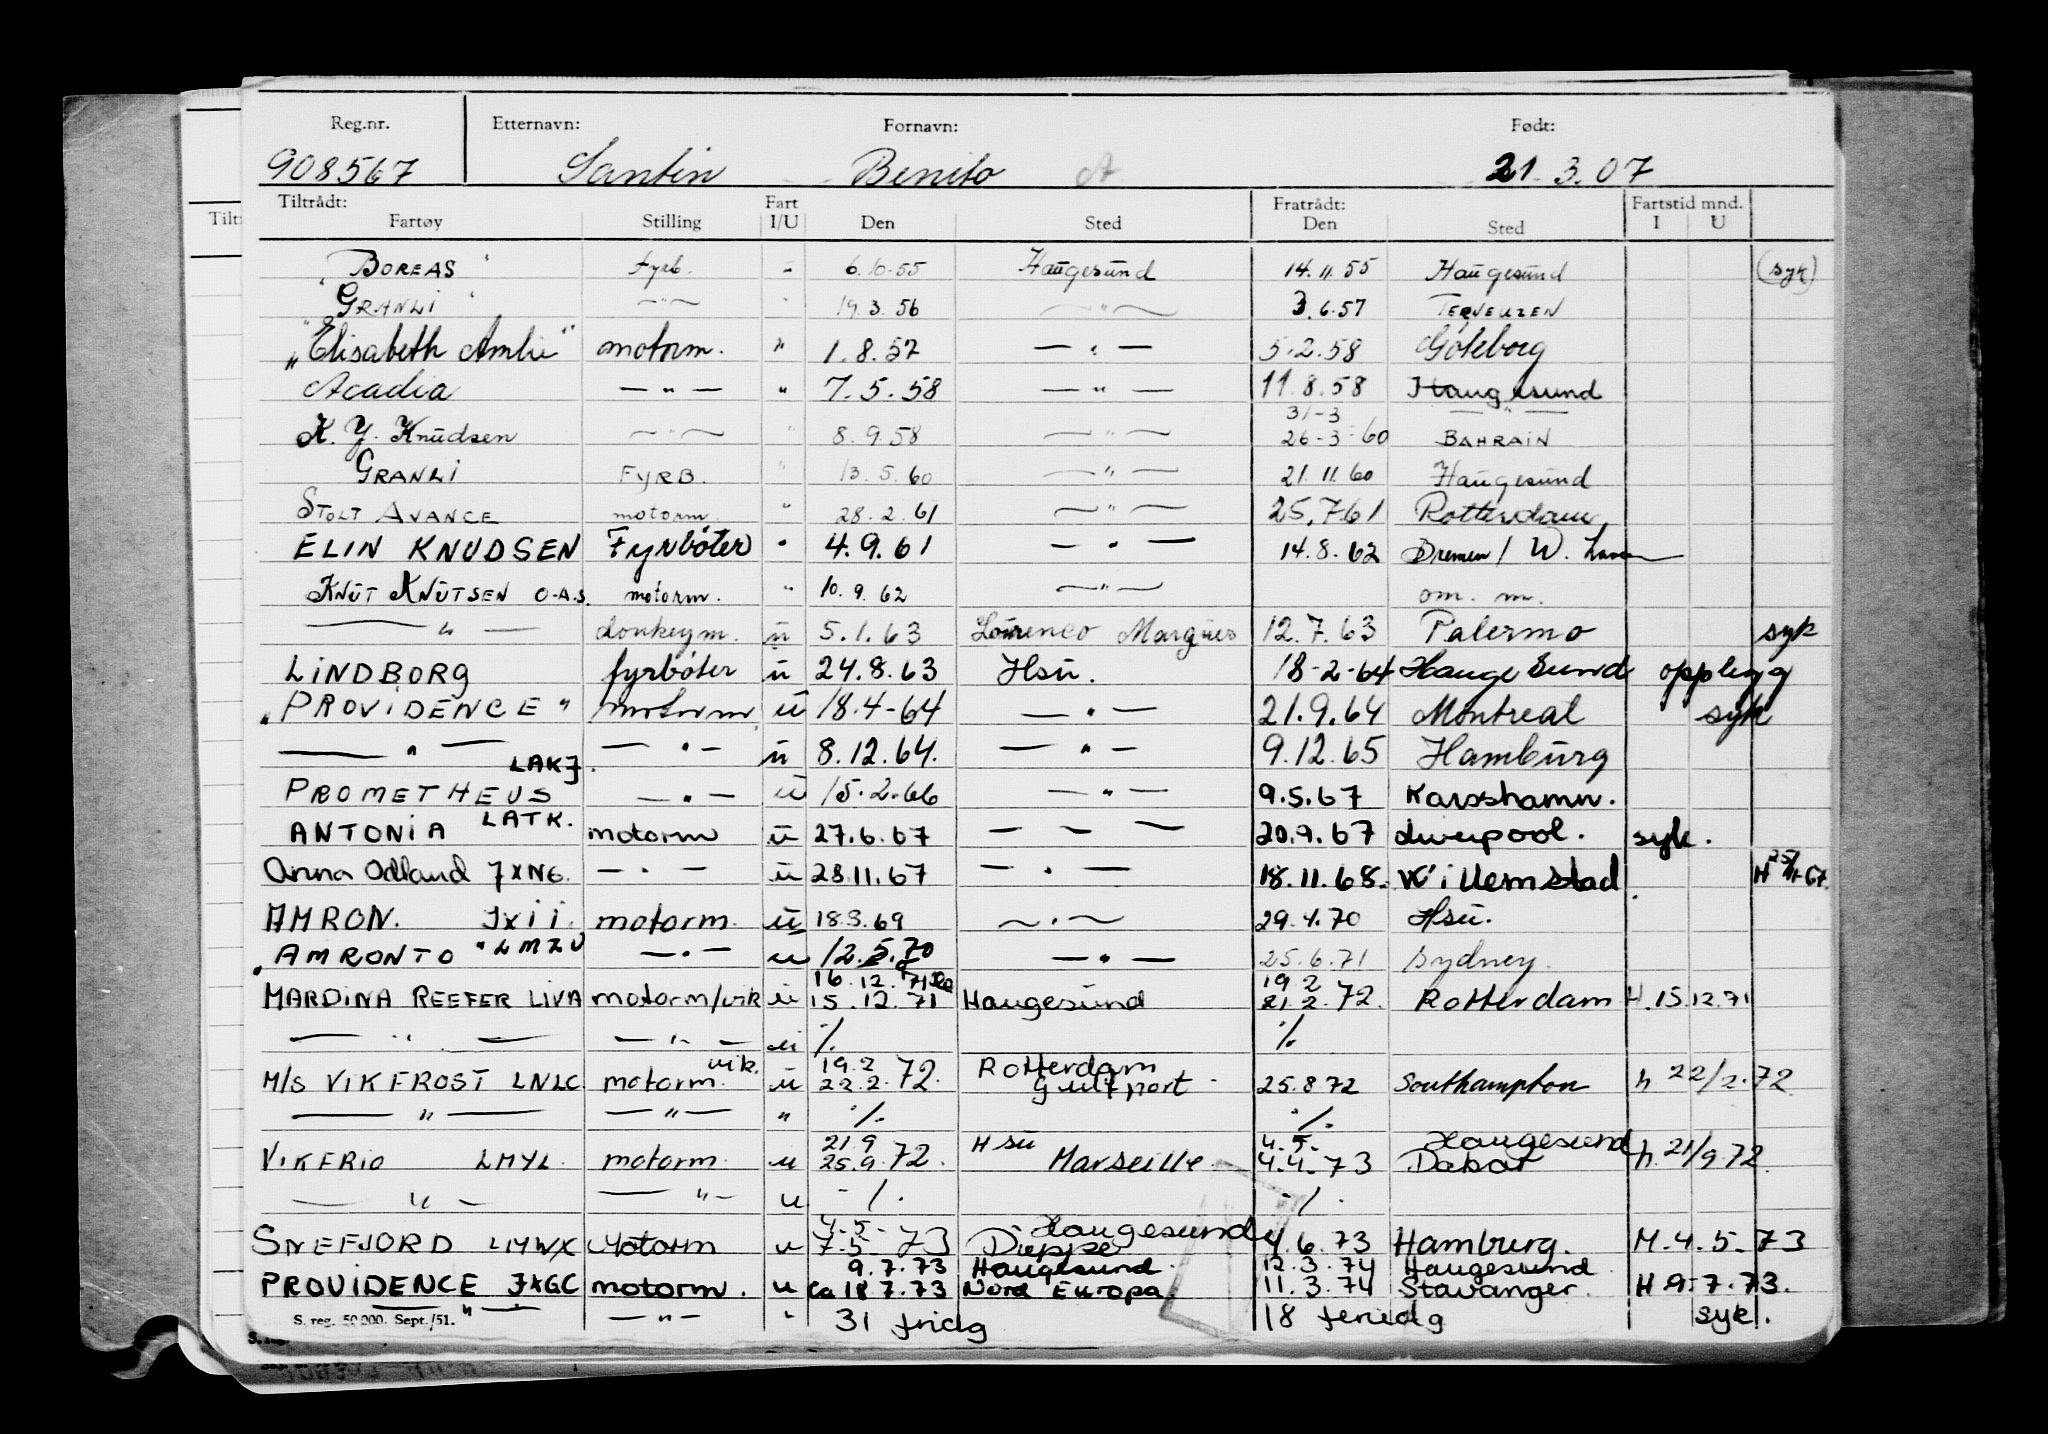 Reg.nr. Etternavn: Fornavn: Født:
908567 Santin Benito A 21.3.07
Tiltrådt: Fart Fratrådt: Fartstid mnd.
Fartøy Stilling I/U Den Sted Den Sted I U
"BOREAS" fyrb. " 6.10.55 Haugesund 14.11.55 Haugesund (syk)
"GRANLI" — " — " 19.3.56 — " — 3.6.57 TERNEUZEN
"Elisabeth Amlie" motorm. " 1.8.57 — " — 5.2.58 Göteborg
Acadia — " — " 7.5.58 — " — 11.8.58 Haugesund
31-3 — " —
K. J. Knudsen — " — " 8.9.58 — " — 26-3-60 BAHRAIN
GRANLI FYRB. " 13.5.60 — " — 21.11.60 Haugesund
STOLT AVANCE motorm. " 28.2.61 — " — 25.7.61 Rotterdam
ELIN KNUDSEN Fyrbøter " 4.9.61 — " — 14.8.62 Bremen / W.
KNUT KNUTSEN O.A.S. motorm. " 10.9.62 — " — om. m.
— " — donkeym. ü 5.1.63 Lourenco Marques 12.7.63 Palermo syk
LINDBORG fyrbøter ü 24.8.63 Hsu. 18-2-64 Haugesund opplegg
"PROVIDENCE" motorm ü 18.4-64 — " — 21.9.64 Montreal syk
— " — — " — ü 8.12.64. — " — 9.12.65 Hamburg
LAKJ.
PROMETHEUS — " — ü 15.2.66 — " — 9.5.67 Karlshamn.
ANTONIA LATK. motorm ü 27.6.67 — " — 20.9.67 Liverpool. syk.
Anna Odland JXNG. — " — ü 28.11.67 — " — 18.11.68. Willemstad H 25/11-67.
AMRON. JXII. motorm. ü 18.3.69 — " — 29.4.70 Hsu.
"AMRONTO" LMZU — " — u 12.5.70 — " — 25.6.71 Sydney.
16.12.71 19.2
MARDINA REEFER LIVA motorm/vik ü 15.12.71 Haugesund 21.2.72. Rotterdam H.15.12.71
— " — — " — ü % %
vik. 19.2 Rotterdam
M/S VIKFROST LNLC motorm. ü 22.2.72. Gulfport 25.8.72 Southampton h 22/2.72
— " — — " — " % %
21.9 Hsu 4.5.- Haugesund
VIKFRIO LMYL. motorm. u 25.9.72. Marseille 4.4.73 Dakar h.21/9.72.
— " — — " — u -/. -/.
4-5- Haugesund
SNEFJORD LMWX Motorm u 7-5-73 Dieppe 4.6.73 Hamburg. M.4.5.73
9.7.73 Haugesund 12.3.74 Haugesund
PROVIDENCE JXGC motorm. u ca 18.7.73 Nord Europa. 11.3.74 Stavanger. H 9.7.73.
— " — — " — " 31 fridg 18 feridg syk.
S. reg. 50 000. Sept./51.